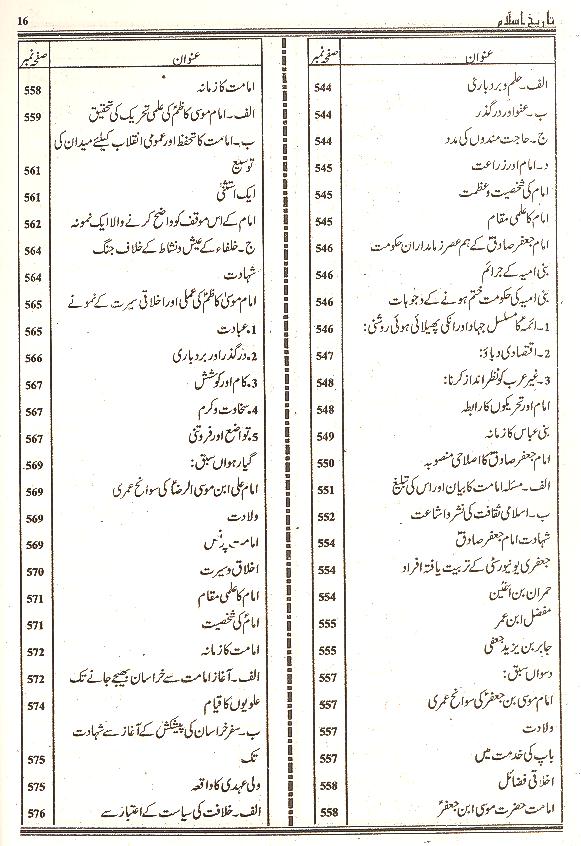 تاریخ اسلام
16
عنوان صفحہ نمبر
الف۔ حلم و بردباری 544
ب۔ عفو اور درگذر 544
ج۔ حاجت مندوں کی مدد 544
د۔ امام اور زراعت 545
امام کی شخصیت و عظمت 545
امام کا علمی مقام 545
امام جعفر صادقؑ کے ہم عصر زمامداران حکومت 546
بنی امیہ کے جرائم 546
بنی امیہ کی حکومت ختم ہونے کے وجوہات 546
1۔ ائمہ کا مسلسل جہاد اور انکی پھیلائی ہوئی روشنی: 546
2۔ اقتصادی دباؤ: 547
3۔ غیر عرب کو نظر انداز کرنا: 548
امام اور تحریکوں کا رابطہ 548
بنی عباس کا زمانہ 549
امام جعفر صادقؑ کا اصلاحی منصوبہ 550
الف۔ مسئلہ امامت کا بیان اور اس کی تبلیغ 551
ب۔ اسلامی ثقافت کی نشر و اشاعت 552
شہادت امام جعفر صادقؑ 554
جعفری یونیورسٹی کے تربیت یافتہ افراد 554
حمران بن اعین 554
مفضل ابن عمر 555
جابر بن یزید جعفی 555
دسواں سبق: 557
امام موسیٰ بن جعفرؑ کی سوانح عمری 557
ولادت 557
باپ کی خدمت میں 557
اخلاقی فضائل 558
امامت حضرت موسیٰ ابن جعفرؑ 558
عنوان صفحہ نمبر
امامت کا زمانہ 558
الف۔ امام موسیٰ کاظمؑ کی علمی تحریک کی تحقیق 559
ب۔ امامت کا تحفظ اور عمومی انقلاب کیلئے میدان کی
توسیع 561
ایک استثنیٰ 561
امام کے اس موقف کو واضح کرنے والا ایک نمونہ 562
ج۔ خلفاء کے عیش و نشاط کے خلاف جنگ 564
شہادت 564
امام موسیٰ کاظمؑ کی عملی اور اخلاقی سیرت کے نمونے 565
1۔ عبادت 565
2۔ درگذر اور بردباری 566
3۔ کام اور کوشش 567
4۔ سخاوت و کرم 567
5۔ تواضع اور فروتنی 567
گیارہواں سبق: 569
امام علی ابن موسیٰ الرضاؑ کی سوانح عمری 569
ولادت 569
امامت پر نص 569
اخلاق و سیرت 570
امام کا علمی مقام 571
امامؑ کی شخصیت 571
امامت کا زمانہ 572
الف۔ آغاز امامت سے خراسان بھیجے جانے تک 572
علویوں کا قیام 574
ب۔ سفر خراسان کی پیشکش کے آغاز سے شہادت
تک 575
ولی عہدی کا واقعہ 575
الف۔ خلافت کی سیاست کے اعتبار سے 576